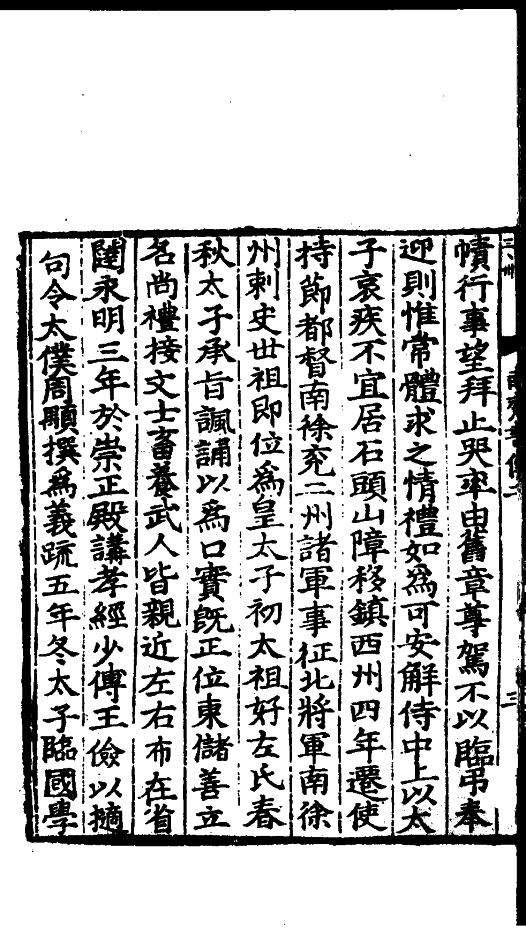 幘行事望拜止哭率由舊章尊駕不以臨弔奉
迎則惟常體求之情禮如爲可安解侍中上以太
子哀疾不宜居石頭山障移鎮西州四年遷使
持節都督南徐兖二州諸軍事征北將軍南徐
州刺史丗祖即位爲皇太子初太祖好左氏春
秋太子承旨諷誦以爲口實旣正位東儲善立
名尚禮接文士畜養武人皆親近左右布在省
闥永明三年於崇正殿講孝經少傅王儉以擿
句令太僕周顒撰爲義疏五年冬太子臨國學